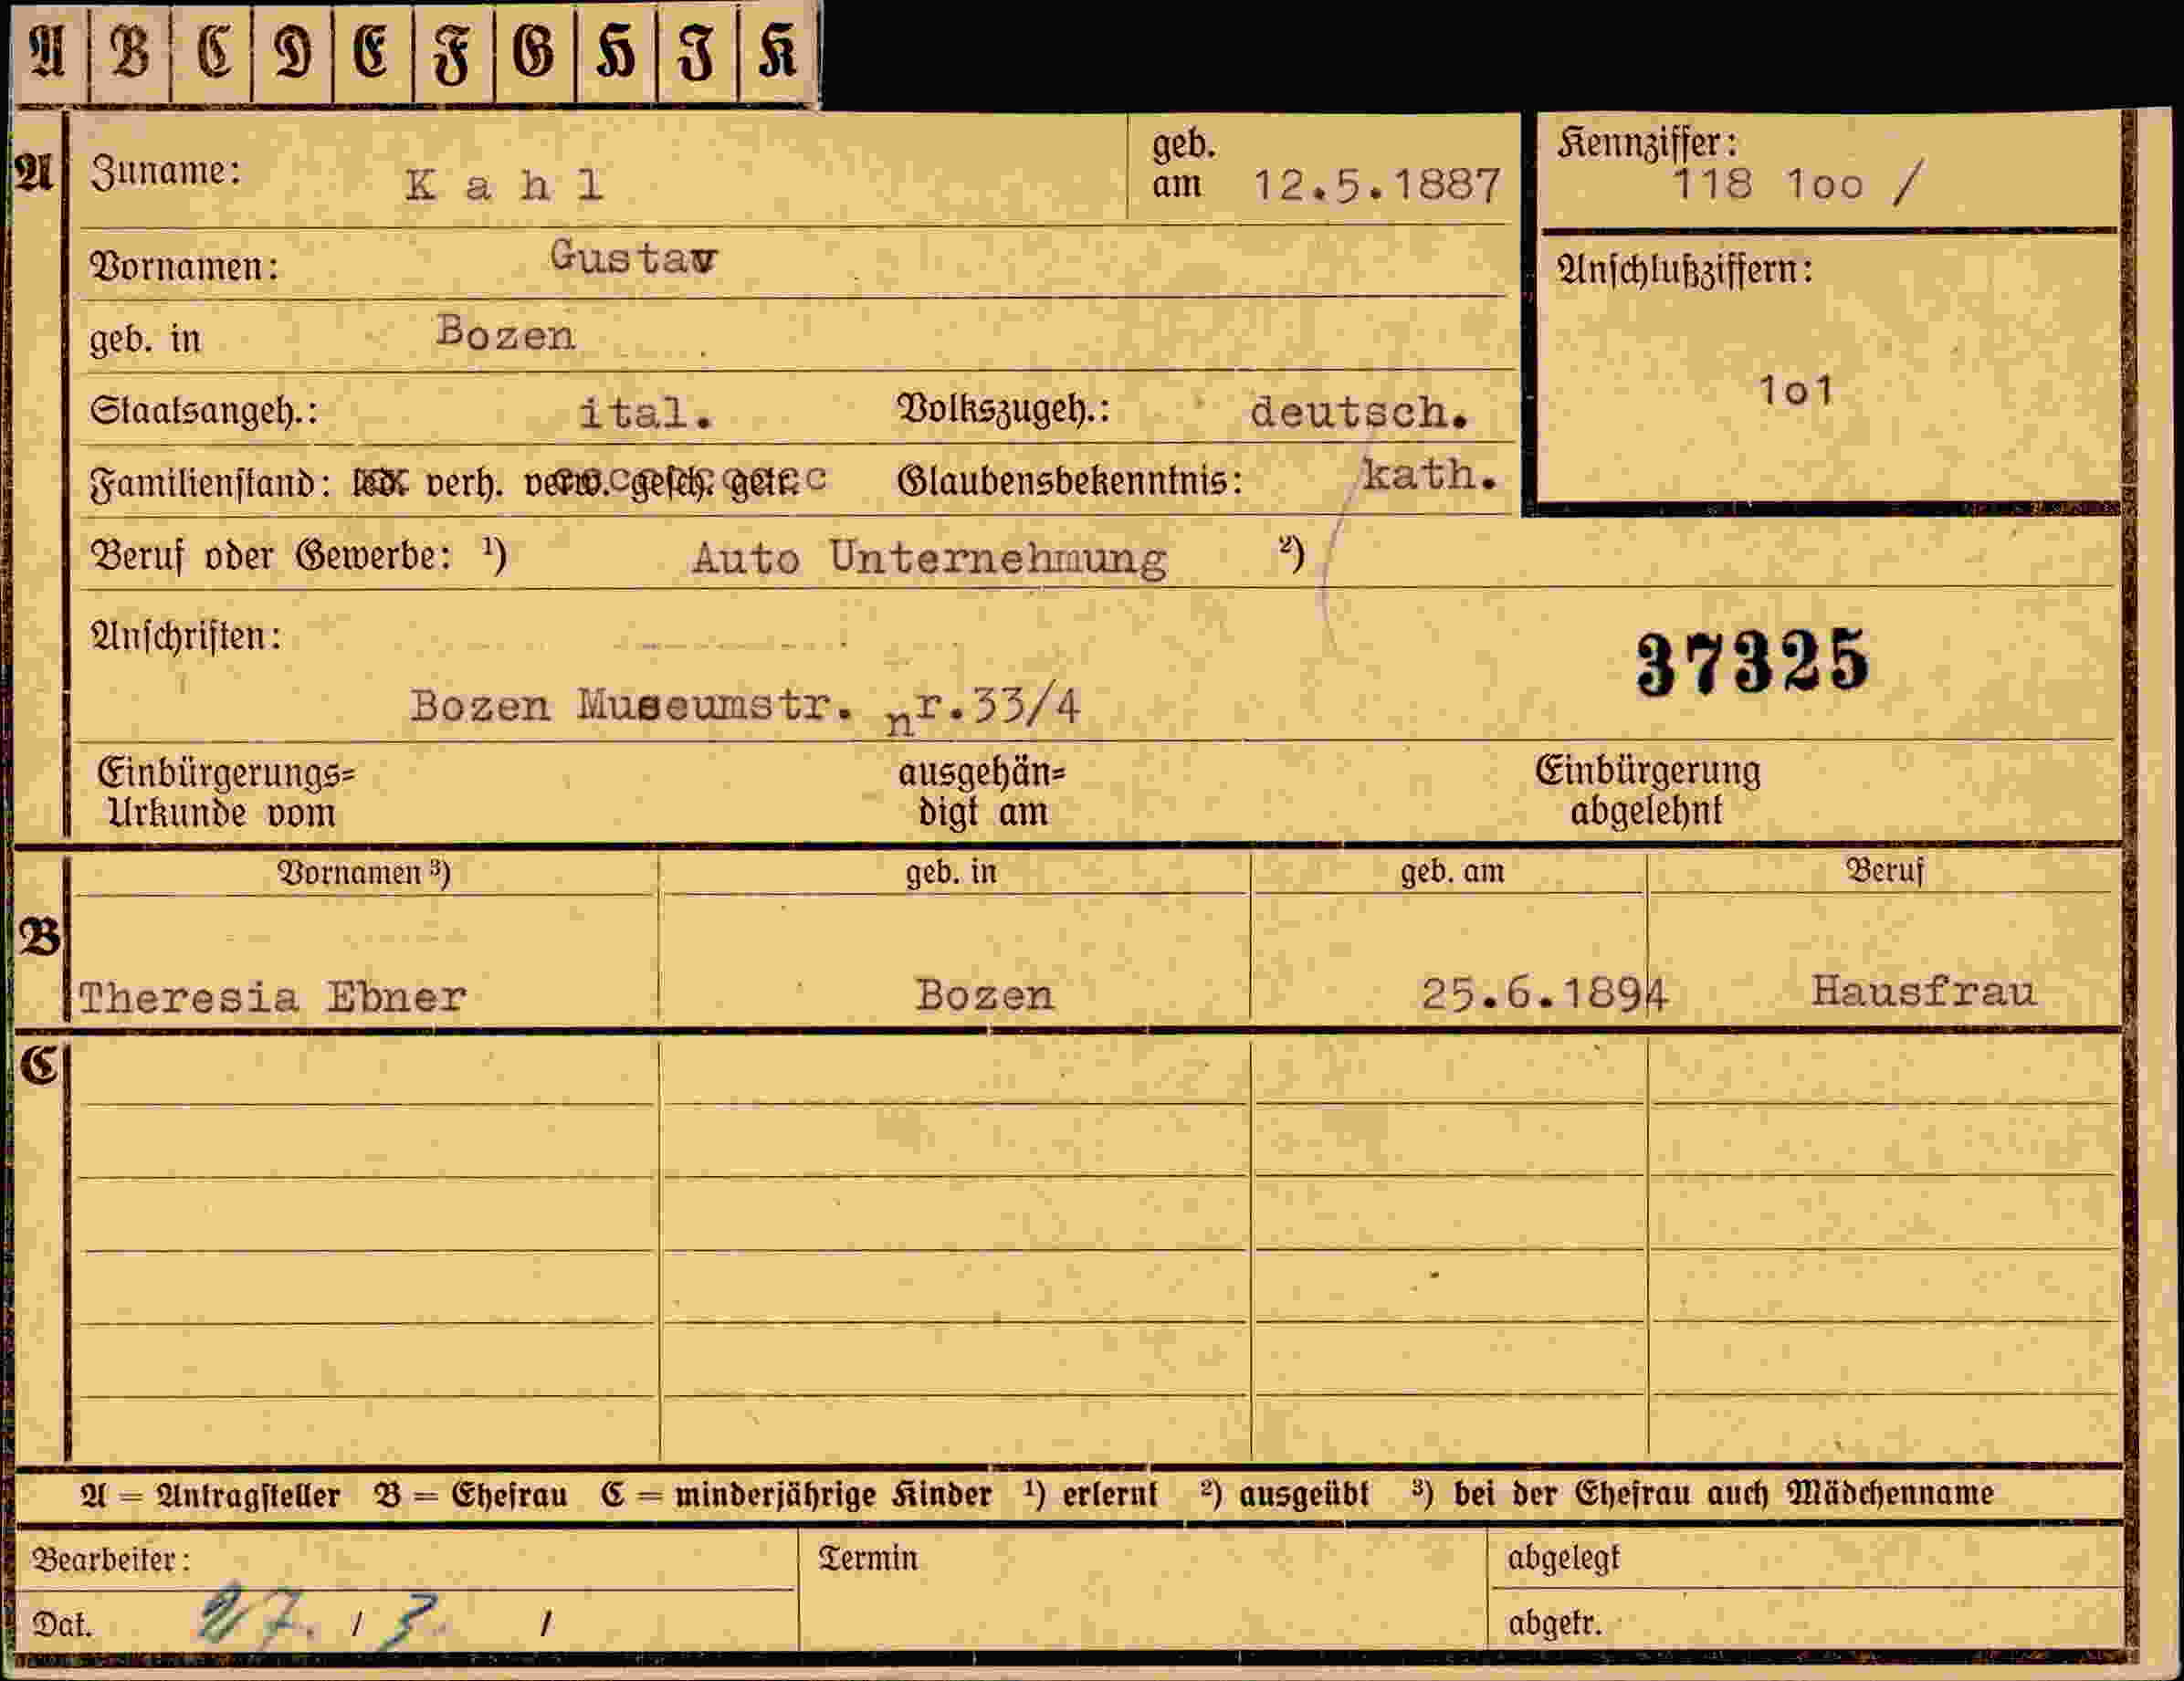 A B C D E F G H I K
A Zuname: Kahl geb. am 12.5.1887
Kennziffer: 118 1oo /
Vornamen: Gustav
Anschlußziffern: 1o1
geb. in Bozen
Staatsangeh.: ital. Volkszugeh.: deutsch.
Familienstand: verh. verw. gesch. getr. Glaubensbekenntnis: kath.
Beruf oder Gewerbe: ¹) Auto Unternehmung ²)
Anschriften:
37325
Bozen Museumstr. nr.33/4
Einbürgerungs= Urkunde vom ausgehän= digt am Einbürgerung abgelehnt
Vornamen ³) geb. in geb. am Beruf
B
Theresia Ebner Bozen 25.6.1894 Hausfrau
C
A = Antragsteller B = Ehefrau C = minderjährige Kinder ¹) erlernt ²) ausgeübt ³) bei der Ehefrau auch Mädchenname
Bearbeiter: Termin abgelegt
Dat. 27. / 3. / abgetr.